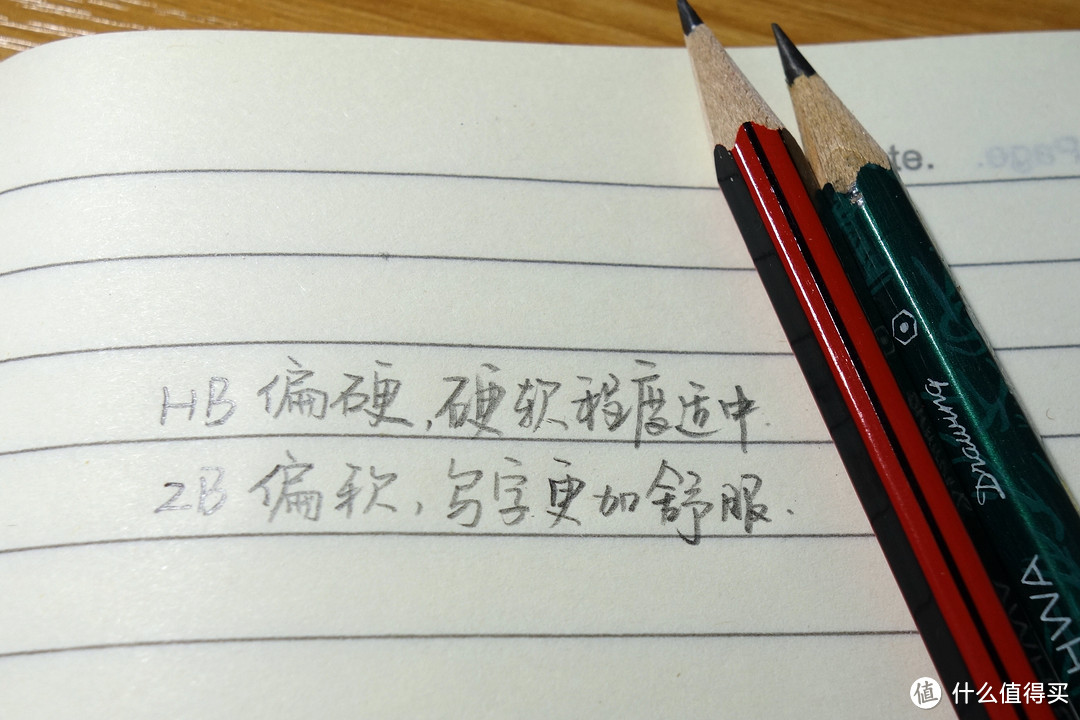 te.
Page.
HB 偏硬,硬软程度适中.
2B 偏软,写字更加舒服.
Drawing
HWA
值 什么值得买